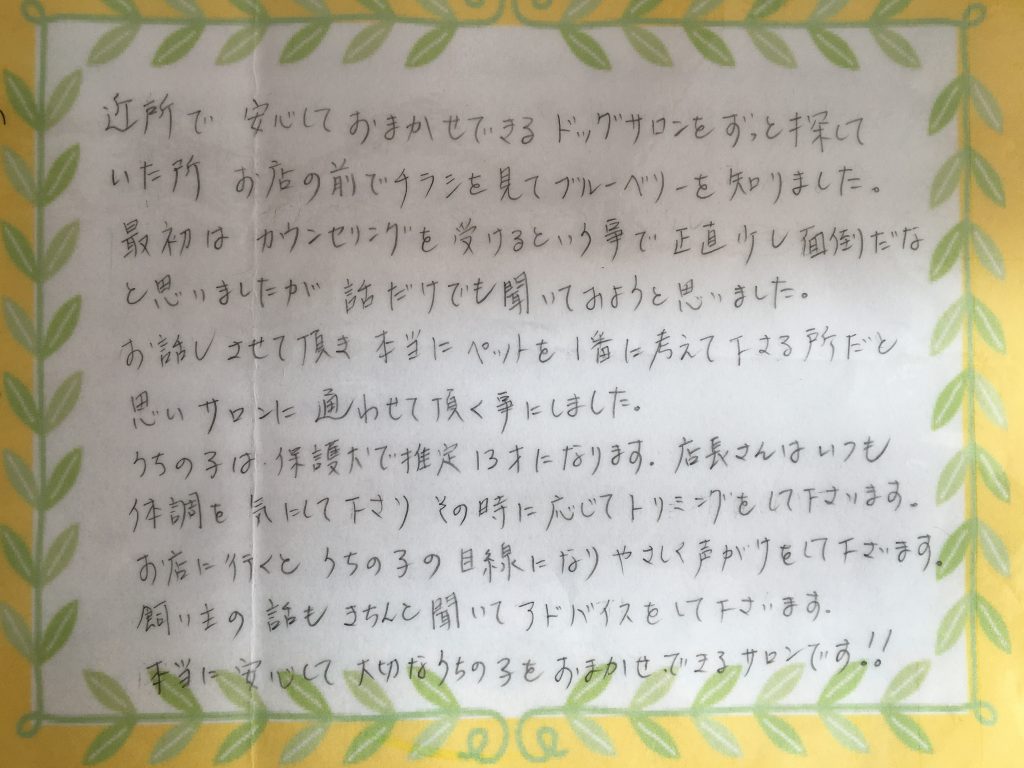 近所で 安心して おまかせできる ドッグサロンをずっと探して
いた所 お店の前でチラシを見て ブルーベリーを知りました。
最初は カウンセリングを受けるという事で 正直少し面倒だな
と思いましたが 話だけでも聞いておようと思いました。
お話しさせて頂き 本当に ペットを1番に考えて下さる所だと
思いサロンに通わせて頂く事にしました。
うちの子は 保護犬で推定13才になります。店長さんはいつも
体調を気にして下さり その時に応じてトリミングをして下さいます。
お店に行くと うちの子の目線になりやさしく声がけをして下さいます。
飼い主の話も きちんと聞いてアドバイスをして下さいます。
本当に 安心して 大切なうちの子を おまかせできるサロンです!!